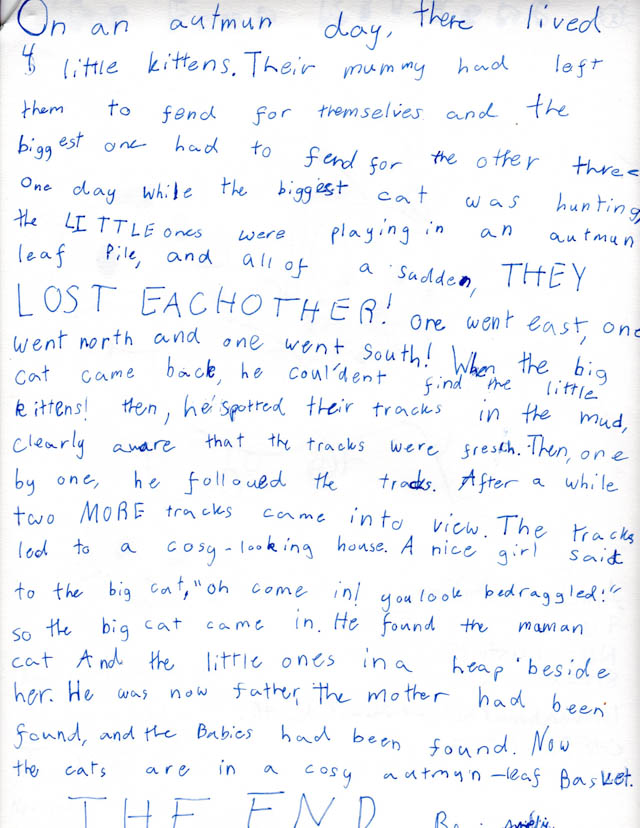 On an autmun day, there lived
4 little kittens. Their mummy had left
them to fend for themselves and the
biggest one had to fend for the other three
One day while the biggest cat was hunting,
the LITTLE ones were playing in an autmun
leaf Pile, and all of a sudden, THEY
LOST EACHOTHER! One went east, one
went north and one went south! When the big
cat came back, he coul'dent find the little
kittens! then, he spotted their tracks in the mud,
clearly aware that the tracks were fresh. Then, one
by one, he followed the tracks. After a while
two MORE tracks came into view. The tracks
led to a cosy-looking house. A nice girl said
to the big cat, "oh come in! you look bedraggled!"
so the big cat came in. He found the maman
cat And the little ones in a heap beside
her. He was now father, The mother had been
found, and the Babies had been found. Now
the cats are in a cosy autmun-leaf Basket.
THE END